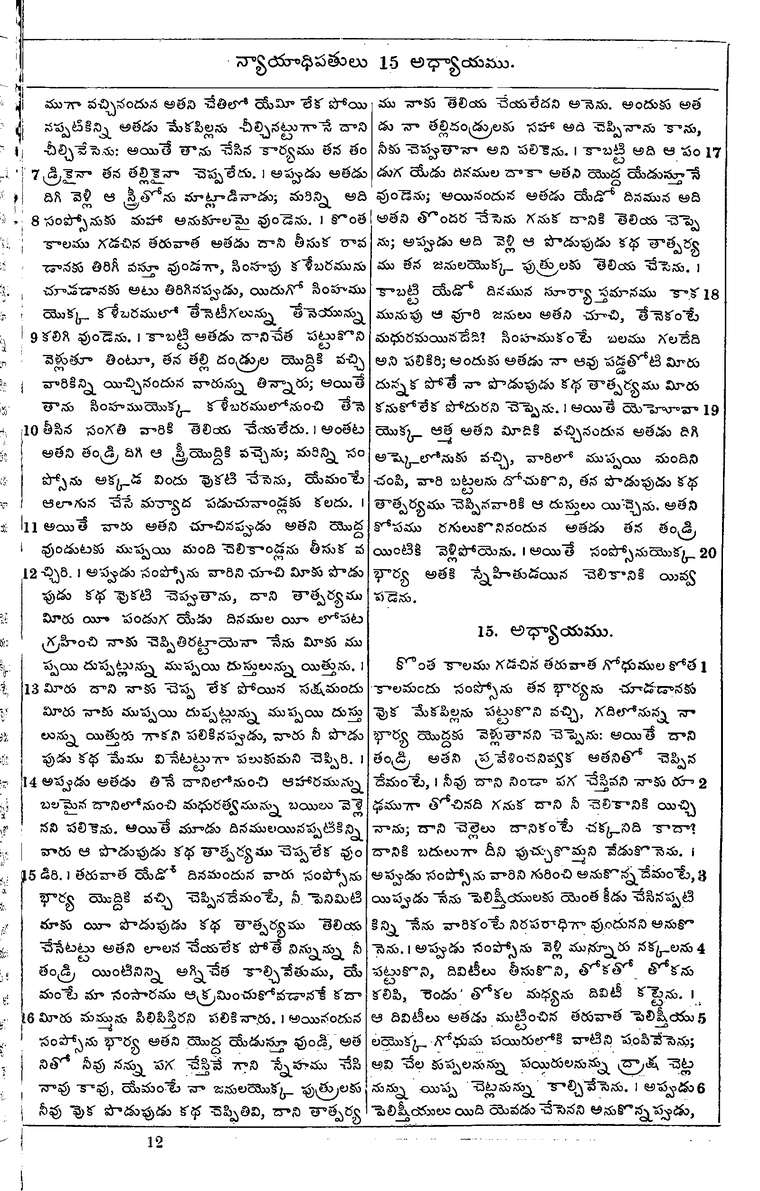 న్యాయాధిపతులు 15 అధ్యాయము.
ముగా వచ్చినందున అతని చేతిలో యేమీ లేక పోయి
నప్పటికిన్ని అతడు మేకపిల్లను చీల్చినట్టుగానే దాని
చీల్చివేసెను: అయితే తాను చేసిన కార్యము తన తం
7 డ్రికైనా తన తల్లికైనా చెప్పలేదు. । అప్పుడు అతడు
దిగి వెళ్లి ఆ స్త్రీతోను మాట్లాడినాడు; మరిన్ని అది
8 సంప్సోనుకు మహా అనుకూలమై వుండెను. । కొంత
కాలము గడచిన తరువాత అతడు దాని తీసుక రావ
డానకు తిరిగీ వస్తూ వుండగా, సింహపు కళేబరమును
చూడడానకు అటు తిరిగినప్పుడు, యిదుగో సింహము
యొక్క కళేబరములో తేనెటీగలున్ను తేనెయున్ను
9 కలిగి వుండెను. । కాబట్టి అతడు దానిచేత పట్టుకొని
వెళ్లుతూ తింటూ, తన తల్లి దండ్రుల యొద్దికి వచ్చి
వారికిన్ని యిచ్చినందున వారున్ను తిన్నారు; అయితే
తాను సింహముయొక్క కళేబరములోనుంచి తేనె
10 తీసిన సంగతి వారికి తెలియ చేయలేదు. । అంతట
అతని తండ్రి దిగి ఆ స్త్రీయొద్దికి వచ్చెను; మరిన్ని సం
ప్సోను అక్కడ విందు వొకటి చేసెను, యేమంటే
ఆలాగున చేసే మర్యాద పడుచువాండ్లకు కలదు. ।
11 అయితే వారు అతని చూచినప్పుడు అతని యొద్ద
వుండుటకు ముప్పయి మంది చెలికాండ్లను తీసుక వ
12 చ్చిరి. । అప్పుడు సంప్సోను వారిని చూచి మీకు పొడు
పుడు కథ వొకటి చెప్పుతాను, దాని తాత్పర్యము
మీరు యీ పండుగ యేడు దినముల యీ లోపట
గ్రహించి నాకు చెప్పితిరట్టాయెనా నేను మీకు ము
ప్పయి దుప్పట్లున్ను ముప్పయి దుస్తులున్ను యిత్తును. ।
13 మీరు దాని నాకు చెప్ప లేక పోయిన పక్షమందు
మీరు నాకు ముప్పయి దుప్పట్లున్ను ముప్పయి దుస్తు
లున్ను యిత్తురు గాకని పలికినప్పుడు, వారు నీ పొడు
పుడు కథ మేము వినేటట్టుగా పలుకుమని చెప్పిరి. ।
14 అప్పుడు అతడు తినే దానిలోనుంచి ఆహారమున్ను
బలమైన దానిలోనుంచి మధురత్వమున్ను బయిలు వెళ్లె
నని పలికెను. అయితే మూడు దినములయినప్పటికిన్ని
వారు ఆ పొడుపుడు కథ తాత్పర్యము చెప్పలేక వుం
15 డిరి. । తరువాత యేడో దినమందున వారు సంప్సోను
భార్య యొద్దికి వచ్చి చెప్పినదేమంటే, నీ పెనిమిటి
మాకు యీ పొడుపుడు కథ తాత్పర్యము తెలియ
చేసేటట్టు అతని లాలన చేయలేక పోతే నిన్నున్ను నీ
తండ్రి యింటినిన్ని అగ్నిచేత కాల్చివేతుము, యే
మంటే మా సంసారము ఆక్రమించుకోవడానకే కదా
16 మీరు మమ్మును పిలిపిస్తిరని పలికినారు. । అయినందున
సంప్సోను భార్య అతని యొద్ద యేడుస్తూ వుండి, అత
నితో నీవు నన్ను పగ చేస్తివే గాని స్నేహము చేసి
నావు కావు, యేమంటే నా జనులయొక్క పుత్రులకు
నీవు వొక పొడుపుడు కథ చెప్పితివి, దాని తాత్పర్య
ము నాకు తెలియ చేయలేదని అనెను. అందుకు అత
డు నా తల్లిదండ్రులకు సహా అది చెప్పినాను కాను,
నీకు చెప్పుతానా అని పలికెను. । కాబట్టి అది ఆ పం 17
డుగ యేడు దినముల దాకా అతని యొద్ద యేడుస్తూనే
వుండెను; అయినందున అతడు యేడో దినమున అది
అతని తొందర చేసెను గనుక దానికి తెలియ చెప్పె
ను; అప్పుడు అది వెళ్లి ఆ పొడుపుడు కథ తాత్పర్య
ము తన జనులయొక్క పుత్రులకు తెలియ చేసెను. ।
కాబట్టి యేడో దినమున సూర్యాస్తమానము కాక 18
మునుపు ఆ వూరి జనులు అతని చూచి, తేనెకంటే
మధురమయినదేది? సింహముకంటే బలము గలదేది
అని పలికిరి; అందుకు అతడు నా ఆవు పడ్డతోటి మీరు
దున్నక పోతే నా పొడుపుడు కథ తాత్పర్యము మీరు
కనుకోలేక పోదురని చెప్పెను. । అయితే యెహోవా 19
యొక్క ఆత్మ అతని మీదికి వచ్చినందున అతడు దిగి
అష్కెలోనుకు వచ్చి, వారిలో ముప్పయి మందిని
చంపి, వారి బట్టలను దోచుకొని, తన పొడుపుడు కథ
తాత్పర్యము చెప్పినవారికి ఆ దుస్తులు యిచ్చెను. అతని
కోపము రగులుకొనినందున అతడు తన తండ్రి
యింటికి వెళ్లిపోయెను. । అయితే సంప్సోనుయొక్క 20
భార్య అతకి స్నేహితుడయిన చెలికానికి యివ్వ
పడెను.
15. అధ్యాయము.
కొంత కాలము గడచిన తరువాత గోధుముల కోత 1
కాలమందు సంప్సోను తన భార్యను చూడడానకు
వొక మేకపిల్లను పట్టుకొని వచ్చి, గదిలోనున్న నా
భార్య యొద్దకు వెళ్లుతానని చెప్పెను: అయితే దాని
తండ్రి అతని ప్రవేశించనివ్వక అతనితో చెప్పిన
దేమంటే, । నీవు దాని నిండా పగ చేస్తివని నాకు రూ 2
ఢముగా తోచినది గనుక దాని నీ చెలికానికి యిచ్చి
నాను; దాని చెల్లెలు దానికంటే చక్కనిది కాదా?
దానికి బదులుగా దీని పుచ్చుకొమ్మని వేడుకొనెను. ।
అప్పుడు సంప్సోను వారిని గురించి అనుకొన్న దేమంటే, 3
యిప్పుడు నేను పెలిష్తీయులకు యెంత కీడు చేసినప్పటి
కిన్ని నేను వారికంటే నిరపరాధిగా వుందునని అనుకొ
నెను. । అప్పుడు సంప్సోను వెళ్లి మున్నూరు నక్కలను 4
పట్టుకొని, దివిటీలు తీసుకొని, తోకతో తోకను
కలిపి, రెండు తోకల మధ్యను దివిటీ కట్టెను. ।
ఆ దివిటీలు అతడు ముట్టించిన తరువాత పెలిష్తీయు 5
లయొక్క గోధుమ పయిరులోకి వాటిని పంపివేసెను;
అవి చేల కుప్పలనున్ను పయిరులనున్ను ద్రాక్ష చెట్ల
నున్ను యిప్ప చెట్లనున్ను కాల్చివేసెను. । అప్పుడు 6
పెలిష్తీయులు యిది యెవడు చేసెనని అనుకొన్నప్పుడు,
12